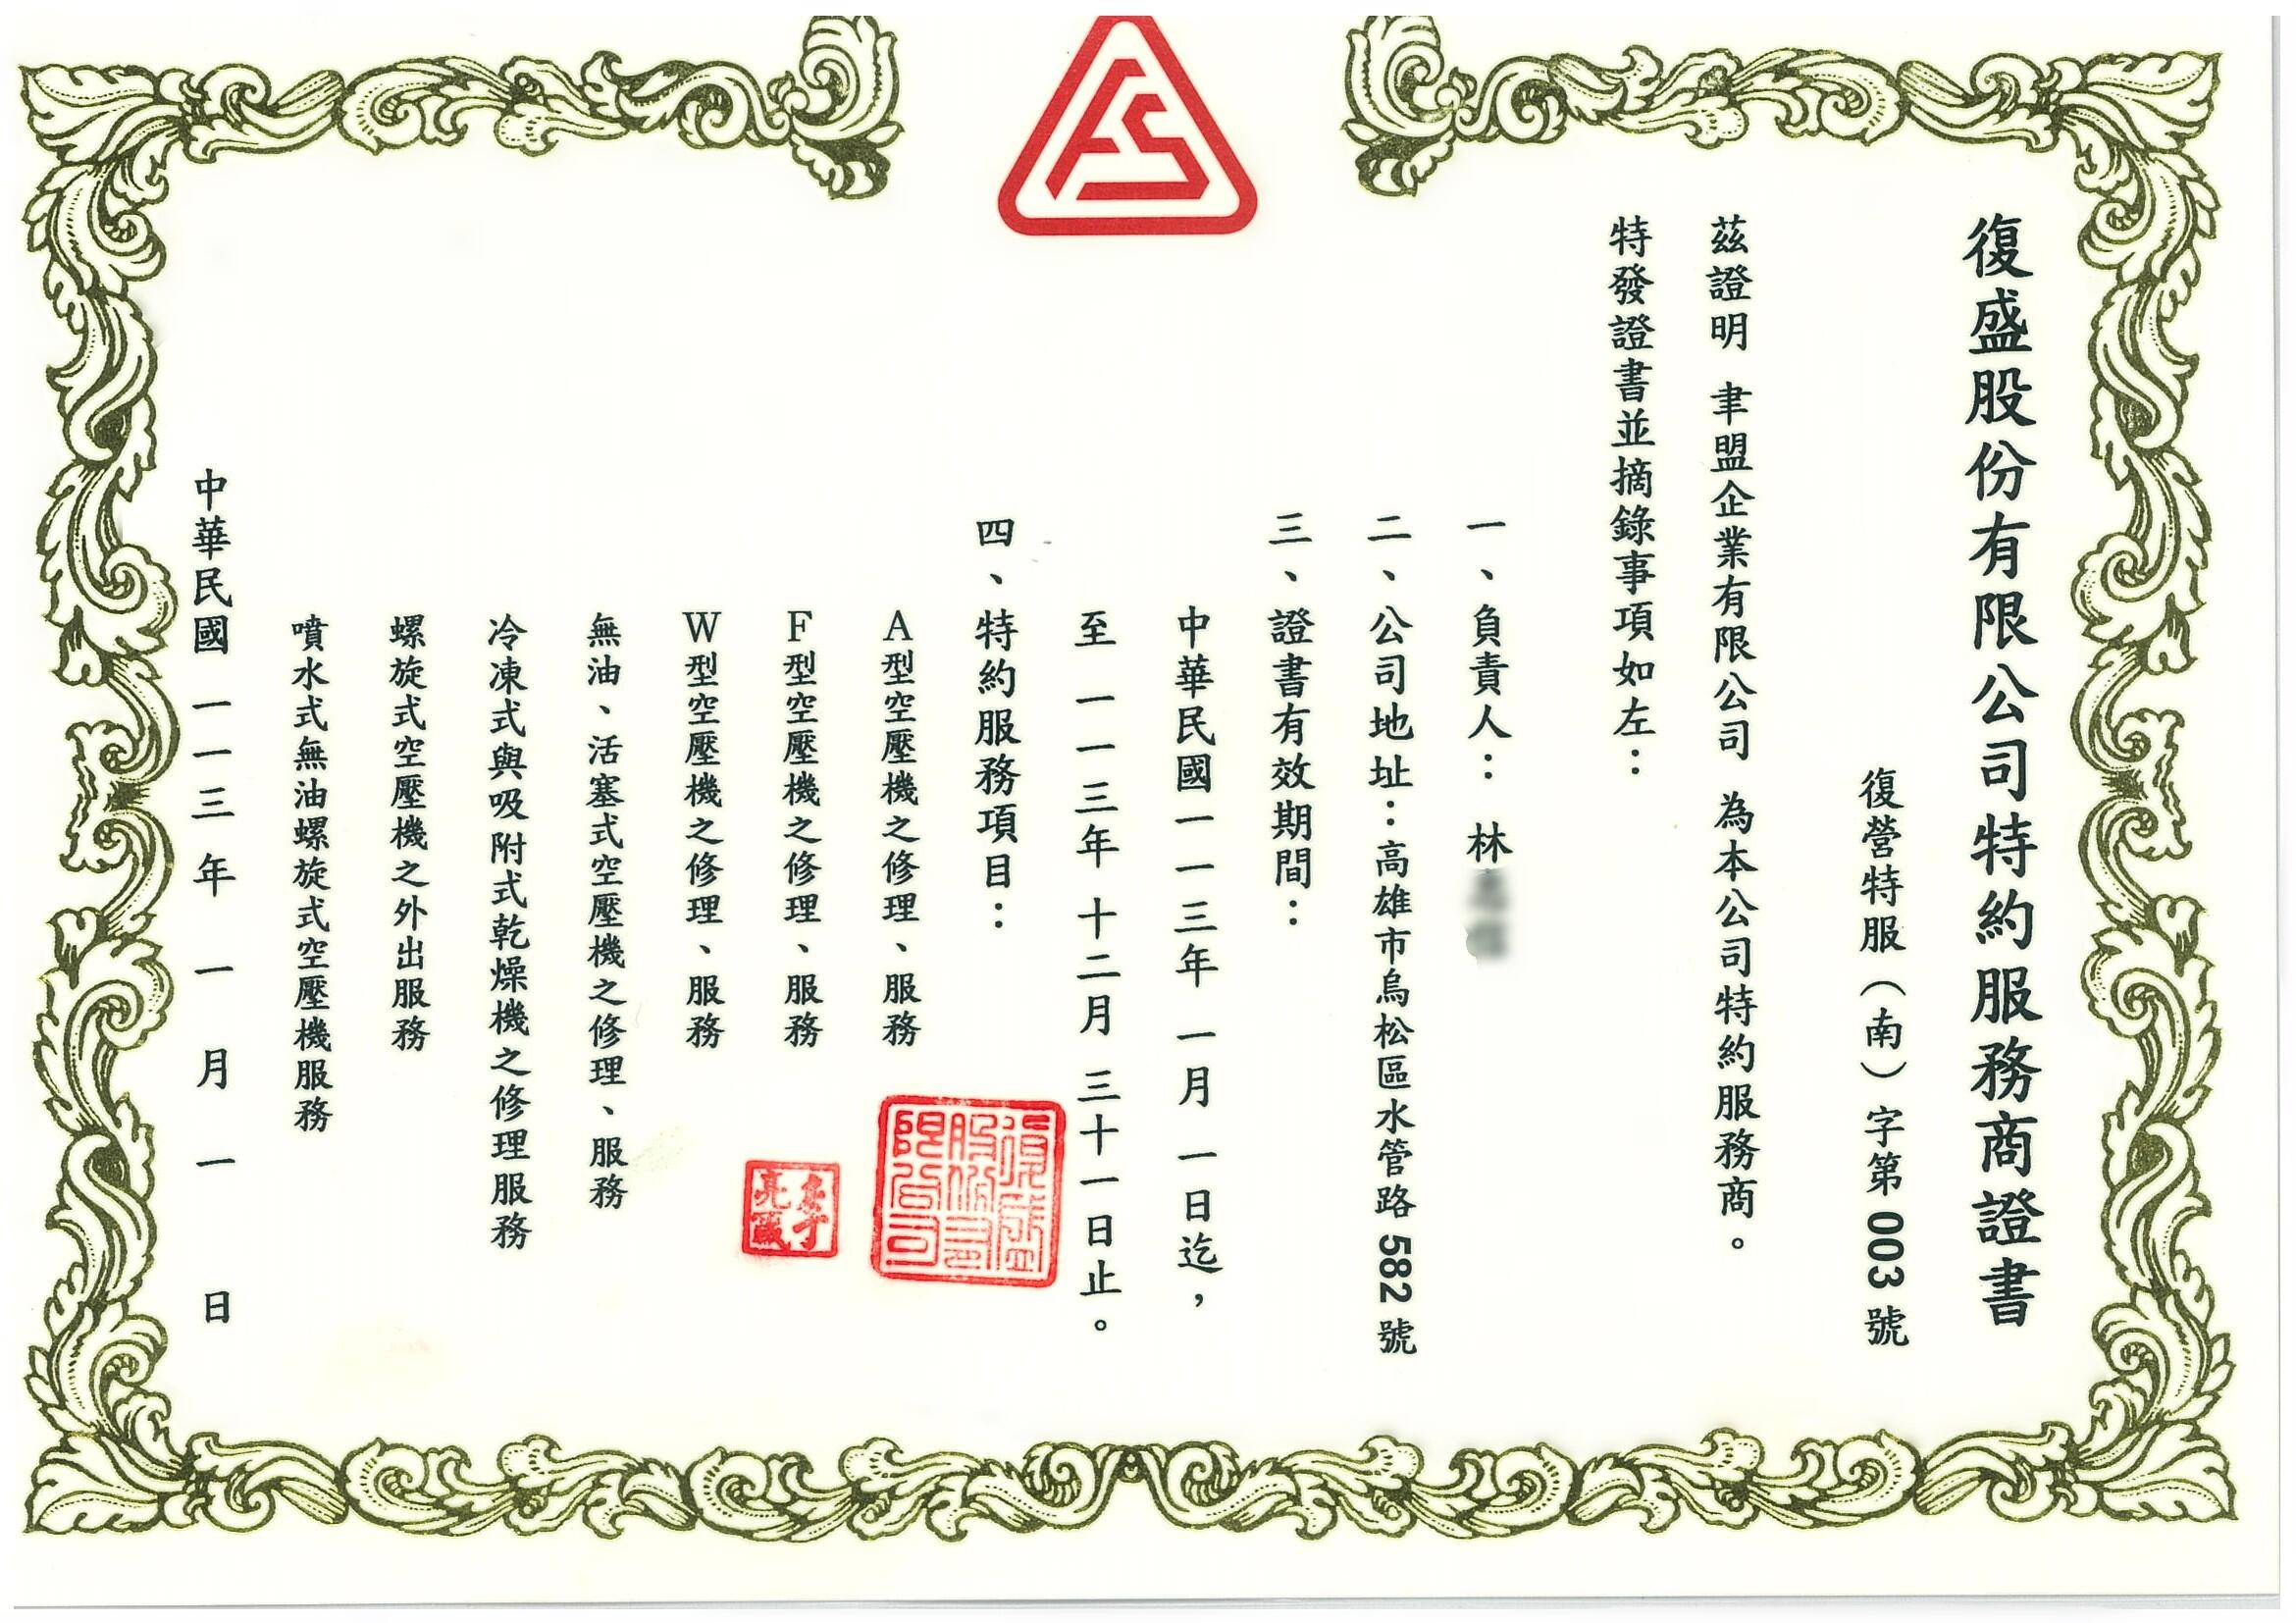 復盛股份有限公司特約服務商證書
復營特服（南）字第 003 號
茲證明 聿盟企業有限公司 為本公司特約服務商。
特發證書並摘錄事項如左：
一、負責人： 林
二、公司地址：高雄市鳥松區水管路 582 號
三、證書有效期間：
中華民國一一三年 一月 一日迄，
至 一一三年 十二月 三十一日止。
四、特約服務項目：
A型空壓機之修理、服務
F型空壓機之修理、服務
W型空壓機之修理、服務
無油、活塞式空壓機之修理、服務
冷凍式與吸附式乾燥機之修理服務
螺旋式空壓機之外出服務
噴水式無油螺旋式空壓機服務
中華民國 一一三 年 一 月 一 日
復盛股份有限公司
FS